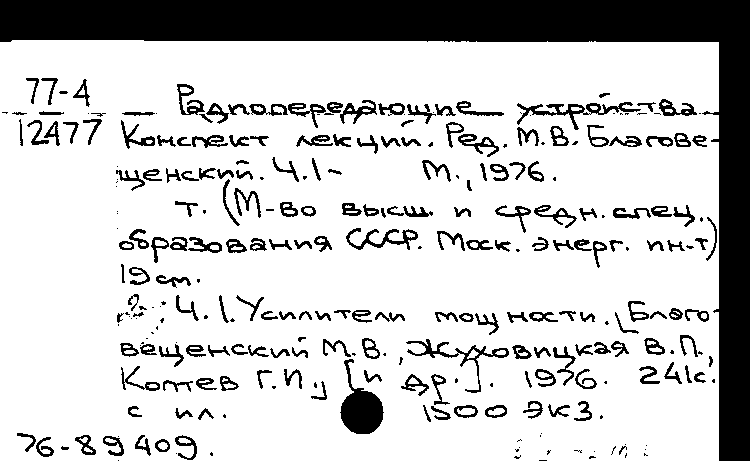 77-4 Радиопередающие устройства.
12477 Конспект лекций. Ред. М.В. Благове-
щенский. Ч.1- М., 1976.
т. (М-во высш. и средн. спец.
образования СССР. Моск. энерг. ин-т)
19 см.
Ч.1. Усилители мощности. [Благо-
вещенский М.В., Жуховицкая В.П.,
Коптев Г.И., [и др.]. 1976. 241с.
с ил. 1500 экз.
76-89409.